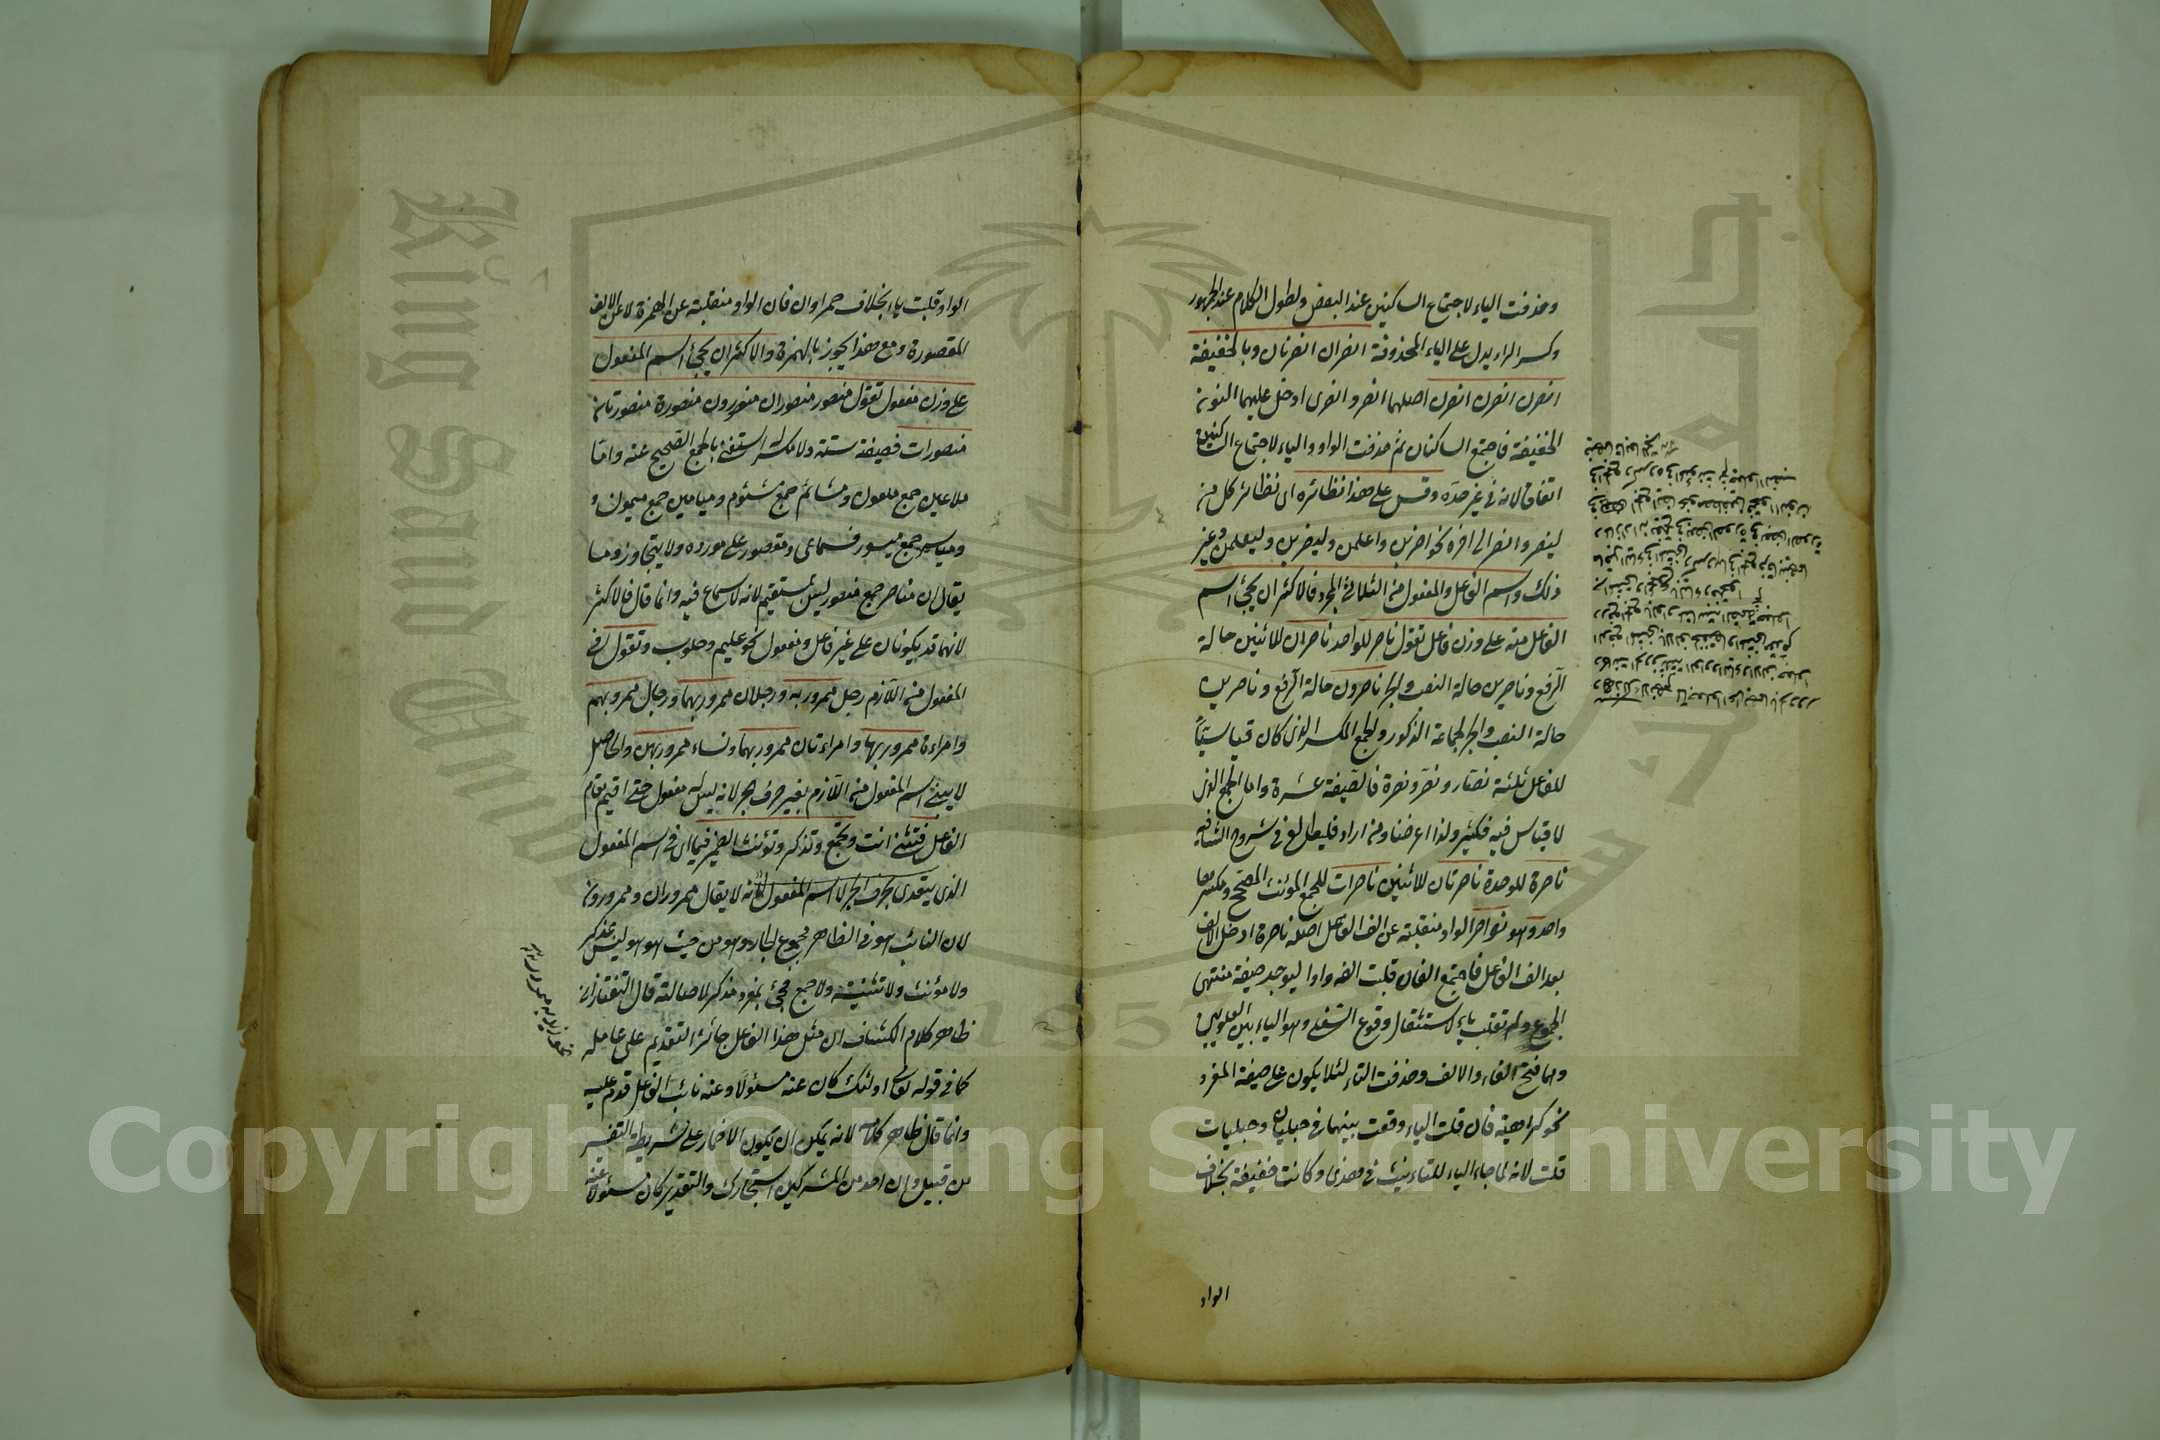 وحذفت الياء لاجتماع الساكنين عند البعض ولطول الكلام عند الجمهور
وكسر الراء يدل على الياء المحذوفة انصران انصرنان وبالخفيفة
انصرن انصرن انصرن اصلهما انصروا انصرى ادخل عليهما النون
الخفيفة فاجتمع الساكنان ثم حذفت الواو والياء لاجتماع الساكنين
اتفاقا لانه في غير حده وقس على هذا نظائره اى نظائر كل من
لينصر وانصر الى اخره نحو اضربن واعلمن وليضربن وليعلمن وغير
ذلك واسم الفاعل والمفعول من الثلاثي المجرد فالاكثر ان يجئ اسم
الفاعل منه على وزن فاعل تقول ناصر للواحد ناصران للاثنين حالة
الرفع وناصرين حالة النصب والجر ناصرون حالة الرفع وناصرين
حالة النصب والجر لجماعة الذكور والجمع المكسر الذى كان قياسيا
للفاعل ثلثة نصار ونصر ونصرة فالصيغة عشرة واما الجمع الذى
لا قياس فيه فكثير ولذا اعرضنا ومن اراد فليطلع في شروح الشافية
ناصرة للوحدة ناصرتان للاثنين ناصرات للجمع المؤنث المصحح ومكسرها
واحد وهو نواصر الواو منقلبة عن الف الفاعل اصله ناصرة ادخل الالف
بعد الف الفاعل فاجتمع الفان قلبت الفه واوا ليوجد صيغة منتهى
الجموع ولم تقلب ياء لاستثقال وقوع السفلى وهو الياء بين العلويين
وهما فتح الفاء والالف وحذفت التاء لئلا يكون على صيغة المفرد
نحو كراهية فان قلت الياء وقعت بينهما في حبليان وحبليات
قلت لانه لما جاء الياء للتانيث في هذى وكانت خفيفة بخلاف
الواو
الواو قلبت ياء بخلاف حمراوان فان الواو منقلبة عن الهمزة لا عن الالف
المقصورة ومع هذا يجوز بالهمزة والاكثر ان يجئ اسم المفعول
على وزن مفعول تقول منصور منصوران منصورون منصورة منصورتان
منصورات فصيغة ستة ولا مكسر له استغنى بالجمع الصحيح عنه واما
ملاعين جمع ملعون ومشائم جمع مشئوم وميامين جمع ميمون و
ومياسر جمع ميسور فسماعى ومقصور على مورده ولا يتجاوز وما
يقال ان مناصر جمع منصور ليس بمستقيم لانه لا سماع فيه وانما قال فالاكثر
لانهما قد يكونان على غير فاعل ومفعول نحو عليم وحلوب وتقول في
المفعول من اللازم رجل ممرور به ورجلان ممرور بهما ورجال ممرور بهم
وامراءة ممرور بها وامراءتان ممرور بهما ونساء ممرور بهن والحاصل
لا يبنى اسم المفعول من اللازم بغير حرف جر لانه ليس له مفعول حتى اقيم مقام
الفاعل فتثنى انت وتجمع وتذكر وتؤنث الضمير فيما اى في اسم المفعول
الذى يتعدى بحرف الجر لا اسم المفعول لانه لا يقال ممروران وممرورون
لان النائب هو في الظاهر مجموع الجار وهو من حيث هو هو ليس بمذكر
ولا مؤنث ولا تثنية ولا جمع فجئ بمفرد مذكر لاصالته قال التفتازانى
ظاهر كلام الكشاف ان مثل هذا الفاعل جائز التقديم على عامله
كما في قوله تعالى اولئك كان عنه مسئولا وعنه نائب الفاعل قدم عليه
وانما قال ظاهر كلامه لانه يمكن ان يكون الاضمار على شريطة التفسير
من قبيل وان احد من المشركين استجارك والتقدير كان مسئولا عنه
Copyright © King Saud University
1957